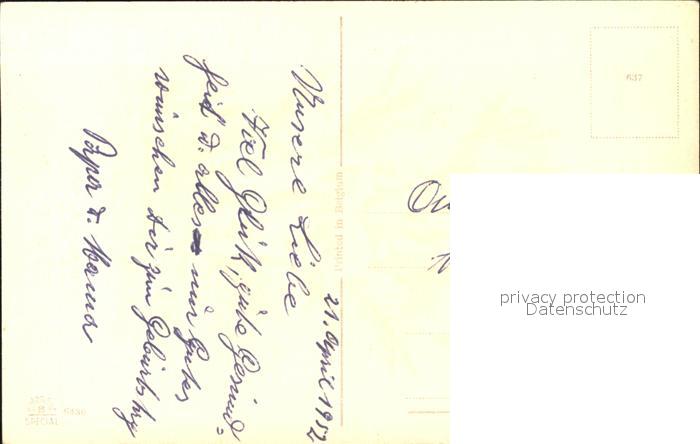 21. April 1952
Unsere Liebe
Viel Glük, gute Gesund=
heit u. alles nur Gutes
wünschen dir zum Geburtstag
Papa u. Mama
Printed in Belgium
637
privacy protection
Datenschutz
SPECIAL